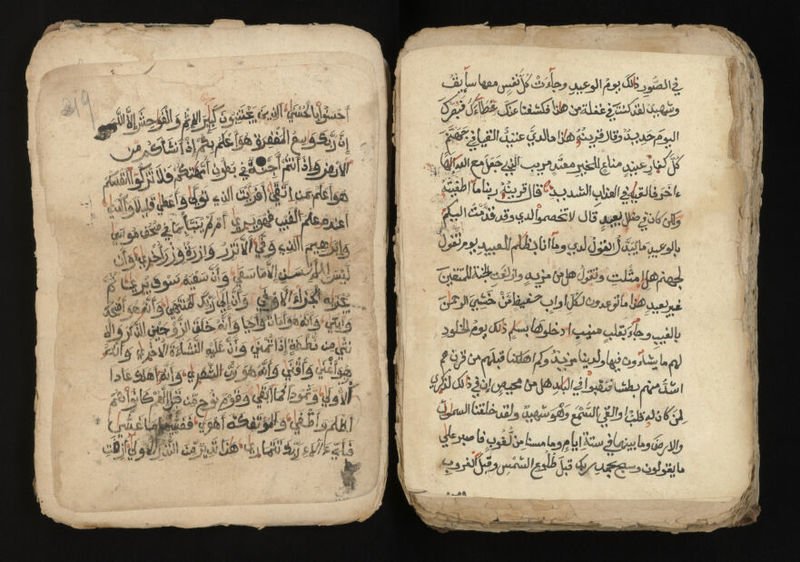 في الصور ذلك يوم الوعيد وجاءت كل نفس معها سايق
وشهيد لقد كنت في غفلة من هذا فكشفنا عنك غطاءك فبصرك
اليوم حديد وقال قرينه هذا ما لدي عتيد القيا في جهنم
كل كفار عنيد مناع للخير معتد مريب الذي جعل مع الله الها
ءاخر فالقياه في العذاب الشديد قال قرينه ربنا ما اطغيته
ولكن كان في ضلل بعيد قال لا تختصموا لدي وقد قدمت اليكم
بالوعيد ما يبدل القول لدي وما انا بظلم للعبيد يوم نقول
لجهنم هل امتلئت وتقول هل من مزيد وازلفت الجنة للمتقين
غير بعيد هذا ما توعدون لكل اواب حفيظ من خشي الرحمن
بالغيب وجاء بقلب منيب ادخلوها بسلم ذلك يوم الخلود
لهم ما يشاءون فيها ولدينا مزيد وكم اهلكنا قبلهم من قرن هم
اشد منهم بطشا فنقبوا في البلد هل من محيص ان في ذلك لذكرى
لمن كان له قلب او القى السمع وهو شهيد ولقد خلقنا السموت
والارض وما بينهما في ستة ايام وما مسنا من لغوب فاصبر على
ما يقولون وسبح بحمد ربك قبل طلوع الشمس وقبل الغروب
219
احسنوا بالحسنى الذين يجتنبون كبير الاثم والفوحش الا اللمم
ان ربك وسع المغفرة هو اعلم بكم اذ انشاكم من
الارض واذ انتم اجنة في بطون امهتكم فلا تزكوا انفسكم
هو اعلم بمن اتقى افريت الذي تولى واعطى قليلا واكدى
اعنده علم الغيب فهو يرى ام لم ينبا بما في صحف موسى
وابرهيم الذي وفى الا تزر وازرة وزر اخرى وان
ليس للانسن الا ما سعى وان سعيه سوف يرى ثم
يجزيه الجزاء الاوفى وان الى ربك المنتهى وانه هو اضحك
وابكى وانه هو امات واحيا وانه خلق الزوجين الذكر والا
نثى من نطفة اذا تمنى وان عليه النشاة الاخرى وانه
هو اغنى واقنى وانه هو رب الشعرى وانه اهلك عادا
الاولى وثمودا فما ابقى وقوم نوح من قبل انهم كانوا هم
اظلم واطغى والموتفكة اهوى فغشيها ما غشى
فباي ءالاء ربك تتمارى هذا نذير من النذر الاولى ازفت